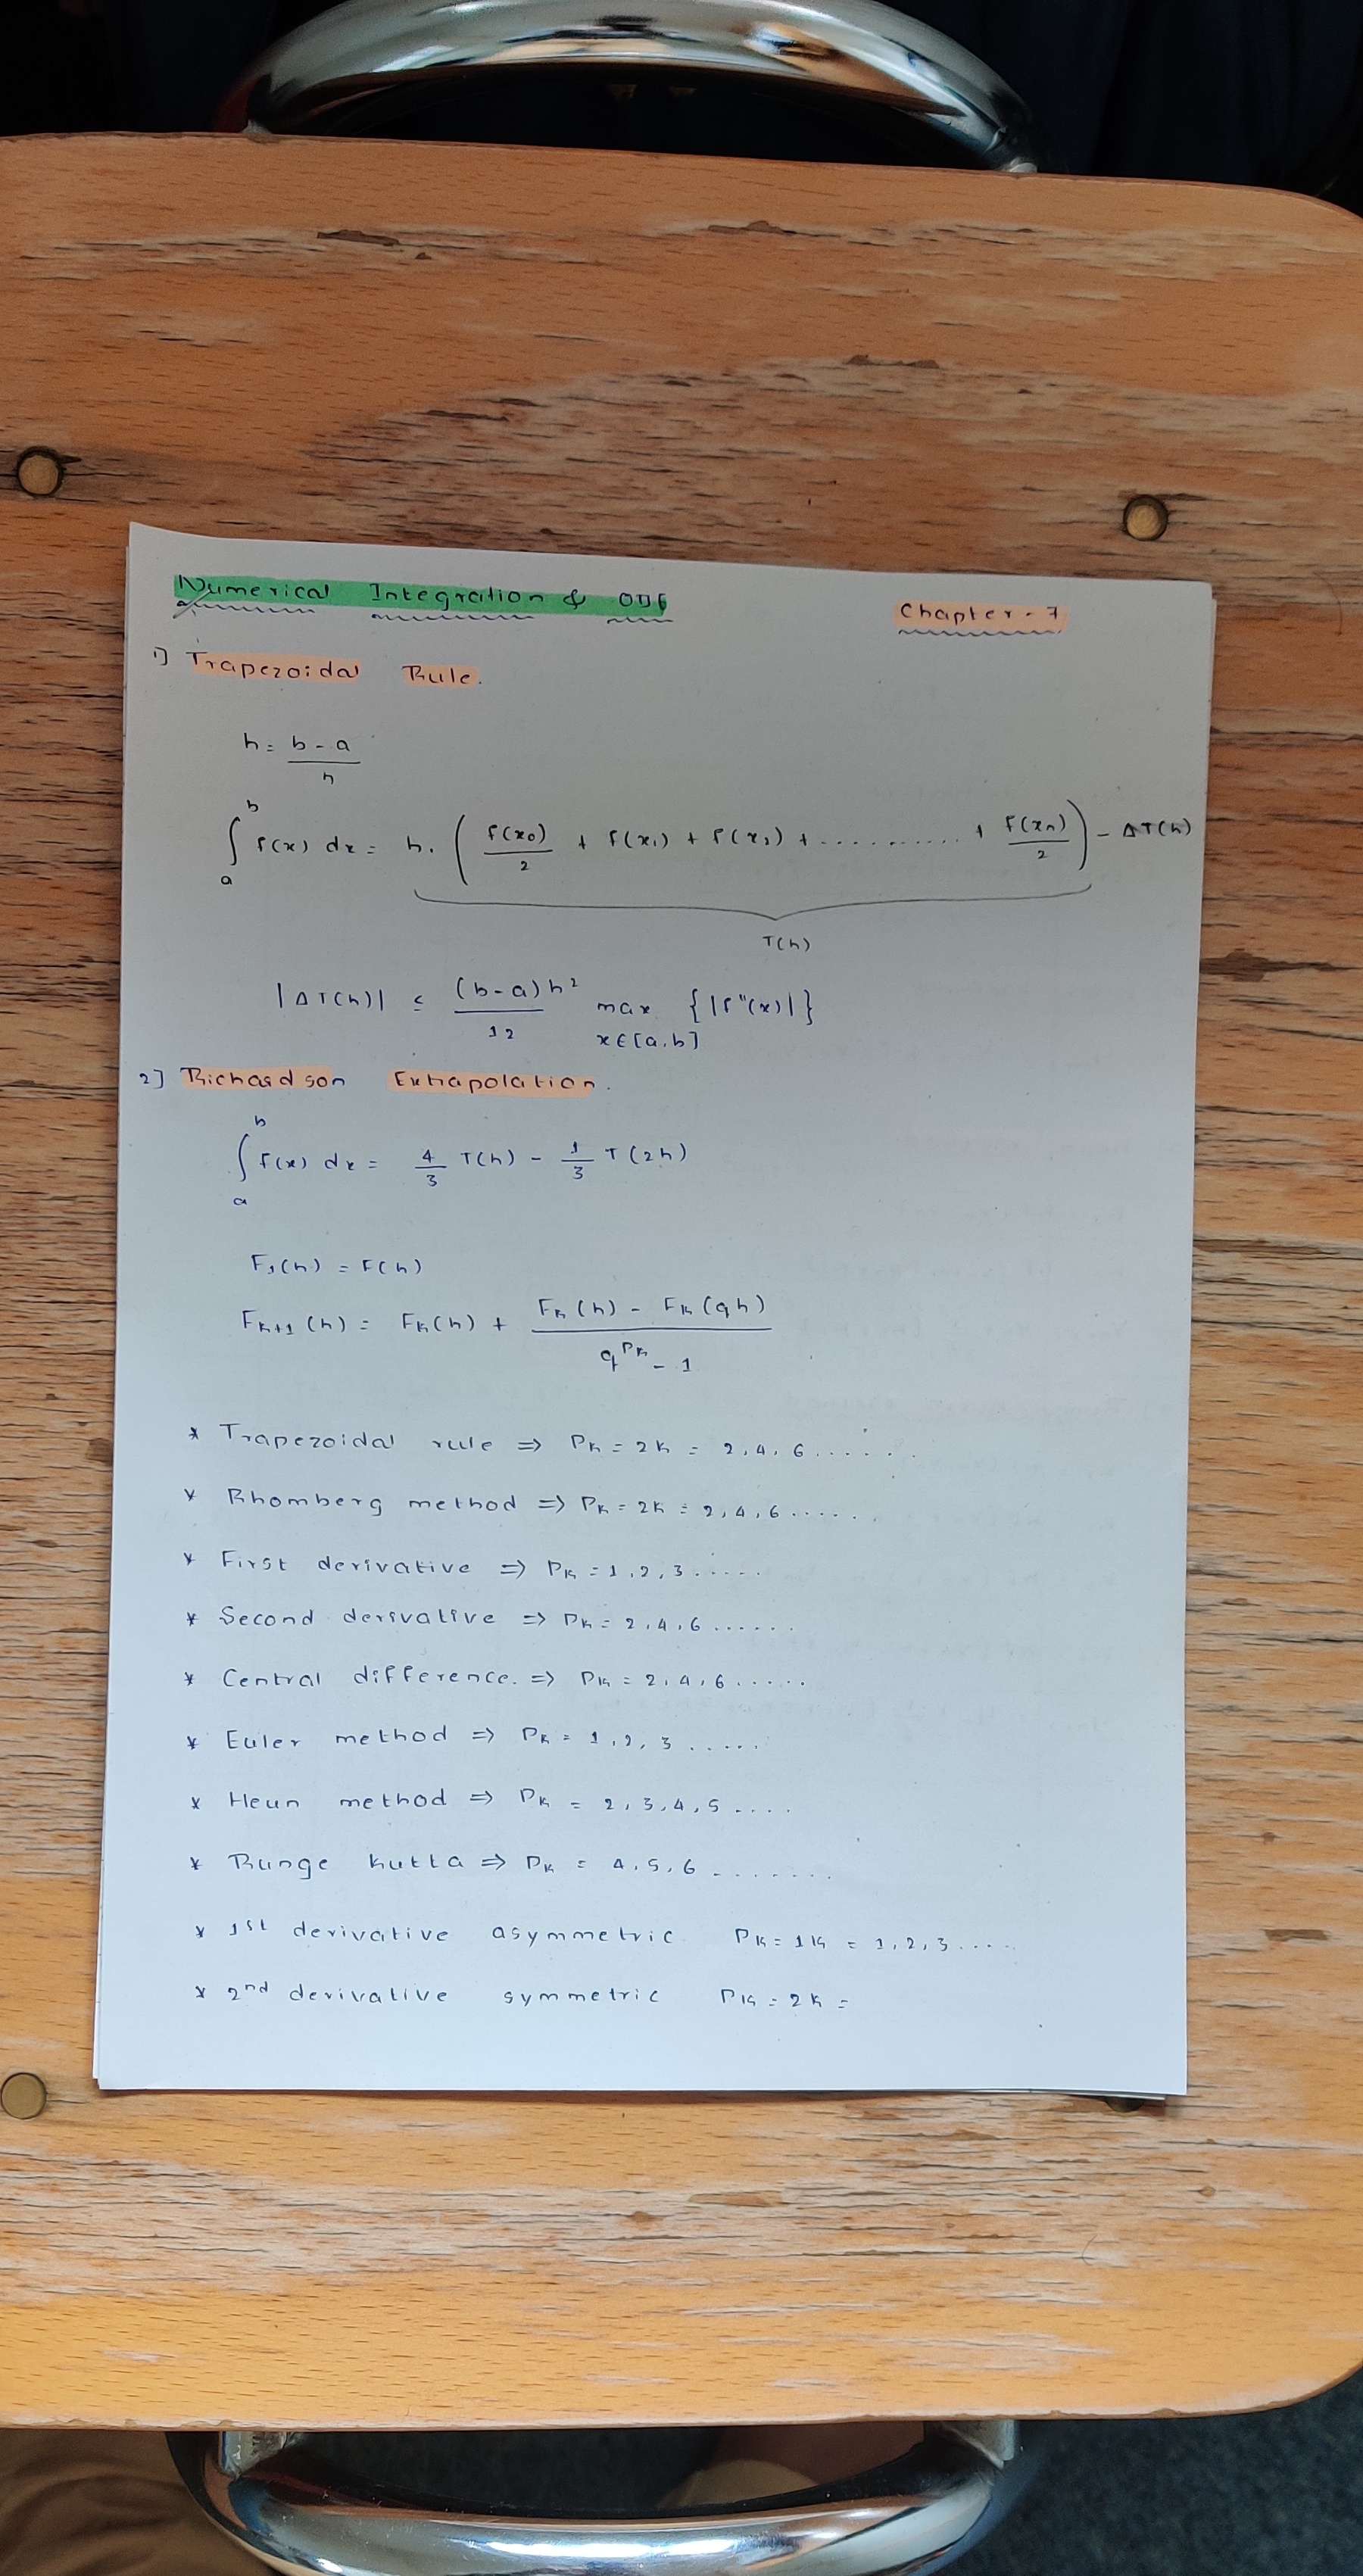 Numerical Integration & ODE
Chapter - 7
1] Trapezoidal Rule.
h = b - a / n
∫_a^b f(x) dx = h . ( f(x₀)/2 + f(x₁) + f(x₂) + ........... + f(xₙ)/2 ) - ΔT(h)
T(h)
|ΔT(h)| ≤ (b-a)h² / 12 max {|f"(x)|}
x∈[a,b]
2] Richardson Extrapolation.
∫_a^b f(x) dx = 4/3 T(h) - 1/3 T(2h)
F₁(h) = F(h)
F_{k+1}(h) = F_k(h) + F_k(h) - F_k(qh) / q^{P_k} - 1
* Trapezoidal rule ⇒ P_k = 2k = 2,4,6......
* Rhomberg method ⇒ P_k = 2k = 2,4,6......
* First derivative ⇒ P_k = 1,2,3.....
* Second derivative ⇒ P_k = 2,4,6......
* Central difference. ⇒ P_k = 2,4,6.....
* Euler method ⇒ P_k = 1,2,3.....
* Heun method ⇒ P_k = 2,3,4,5....
* Runge kutta ⇒ P_k = 4,5,6.......
* 1st derivative asymmetric P_k = 1k = 1,2,3....
* 2nd derivative symmetric P_k = 2k =